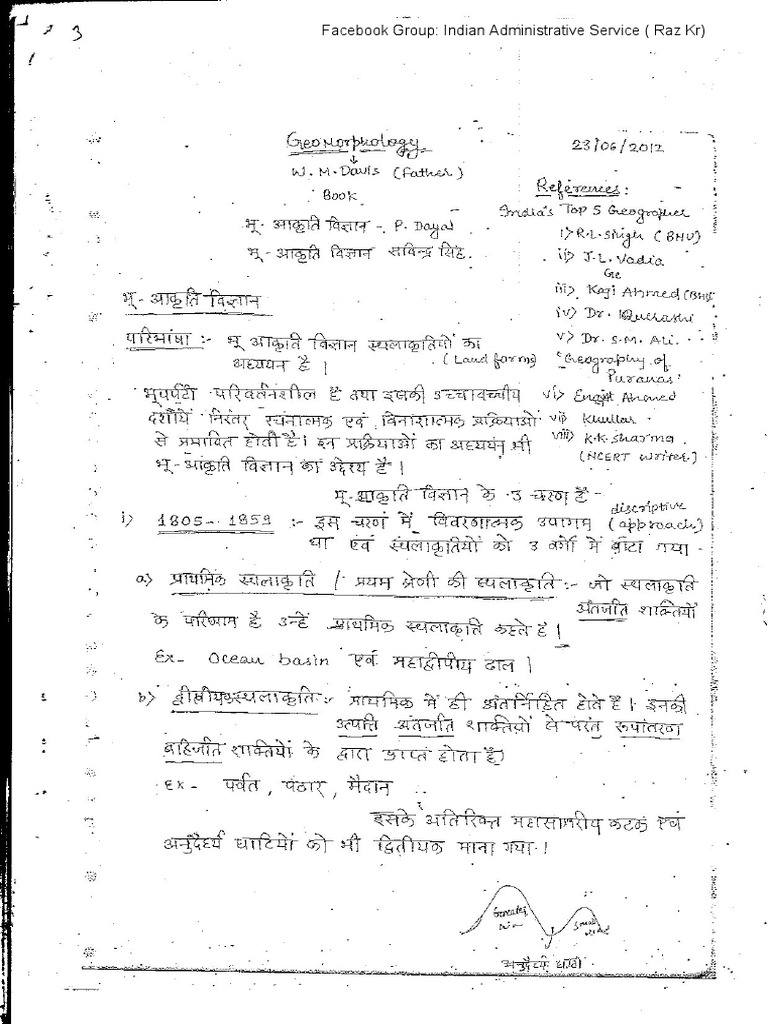 Facebook Group: Indian Administrative Service ( Raz Kr)
3
Geomorphology
23/06/2012
W. M. Davis (Father)
Book
भू- आकृति विज्ञान - P. Dayal
भू - आकृति विज्ञान सविन्द्र सिंह.
References:
India's Top 5 Geographer
i) R.L. Singh (BHU)
ii) J.L. Vadia
Ge
iii) Kagi Ahmed (BHU
iv) Dr. Qureshi
v) Dr. S.M. Ali.
"Geography of
Puranas"
vi) Ahmed
vii) Khullar
viii) K.K. Sharma
(NCERT Writer)
भू - आकृति विज्ञान
परिभाषा :- भू आकृति विज्ञान स्थलाकृतियों का
(Land form)
अध्ययन है ।
भूपर्पटी परिवर्तनशील है तथा इसकी उच्चावच्चीय
दशायें निरंतर रचनात्मक एवं विनाशात्मक प्रक्रियाओं
से प्रभावित होती है। इन प्रक्रियाओं का अध्ययन भी
भू - आकृति विज्ञान का उद्देश्य है ।
भू-आकृति विज्ञान के 3 चरण है -
i) 1805 - 1859 :- इस चरण में विवरणात्मक उपागम (discriptive approach)
था एवं स्थलाकृतियों को 3 वर्गो में बांटा गया
a) प्राथमिक स्थलाकृति / प्रथम श्रेणी की स्थलाकृति :- जो स्थलाकृति
अंतर्जात शक्तियों
के परिणाम है उन्हें प्राथमिक स्थलाकृति कहते है ।
Ex- Ocean basin एवं महाद्वीपीय ढाल ।
b) द्वीतीयक स्थलाकृति :- प्राथमिक में ही अंतर्निहित होते है। इनकी
उत्पत्ति अंतर्जात शक्तियों से परंतु रूपांतरण
बहिर्जात शक्तियों के द्वारा प्राप्त होता है।
Ex- पर्वत , पठार , मैदान
इसके अतिरिक्त महासागरीय कटक एवं
अनुदैर्घ्य घाटियों को भी द्वितीयक माना गया ।
Greater
Small
अनुदैर्घ्य घाटी